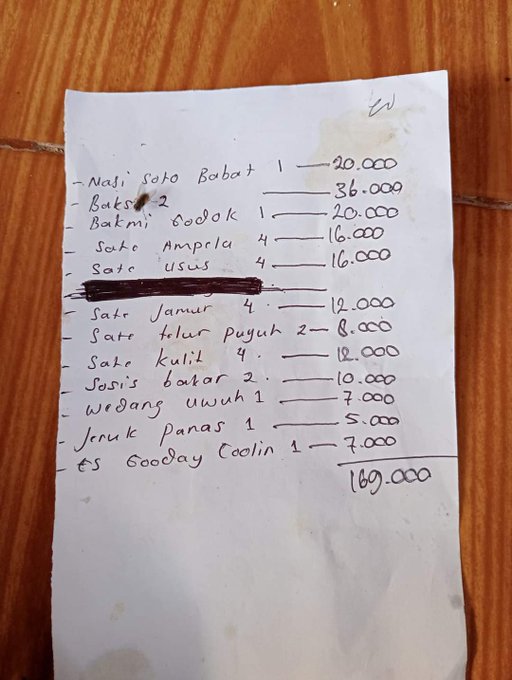 - Nasi Soto Babat 1 — 20.000
- Bakso 2 — 36.000
- Bakmi Godok 1 — 20.000
- Sate Ampela 4 — 16.000
- Sate usus 4 — 16.000
- Sate Jamur 4 — 12.000
- Sate telur puyuh 2 — 8.000
- Sate kulit 4 — 12.000
- Sosis bakar 2 — 10.000
- Wedang uwuh 1 — 7.000
- Jeruk panas 1 — 5.000
- ES Gooday Coolin 1 — 7.000
169.000